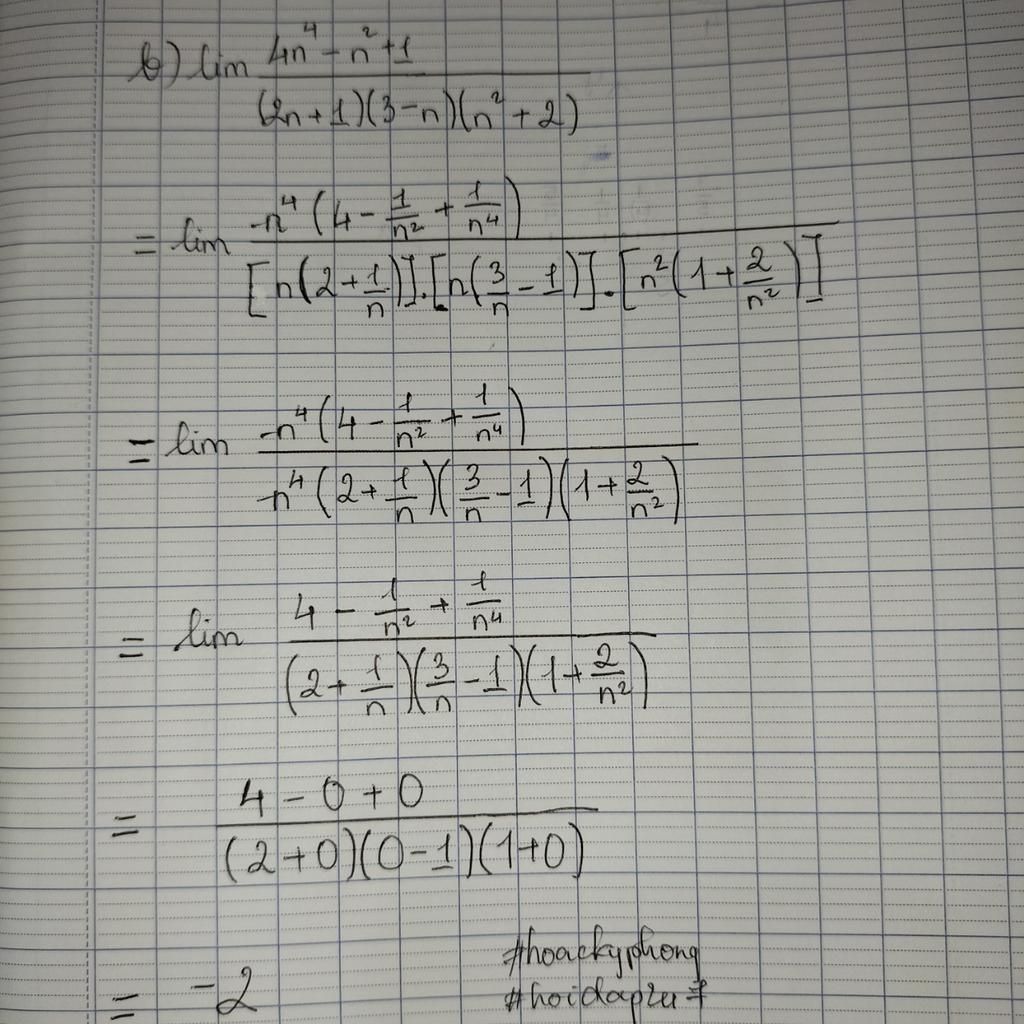 b) lim (4n⁴ - n² + 1) / ((2n + 1)(3 - n)(n² + 2))
= lim n⁴(4 - 1/n² + 1/n⁴) / ([n(2 + 1/n)].[n(3/n - 1)].[n²(1 + 2/n²)])
= lim n⁴(4 - 1/n² + 1/n⁴) / (n⁴(2 + 1/n)(3/n - 1)(1 + 2/n²))
= lim (4 - 1/n² + 1/n⁴) / ((2 + 1/n)(3/n - 1)(1 + 2/n²))
= (4 - 0 + 0) / ((2 + 0)(0 - 1)(1 + 0))
#hoackyphong
= -2